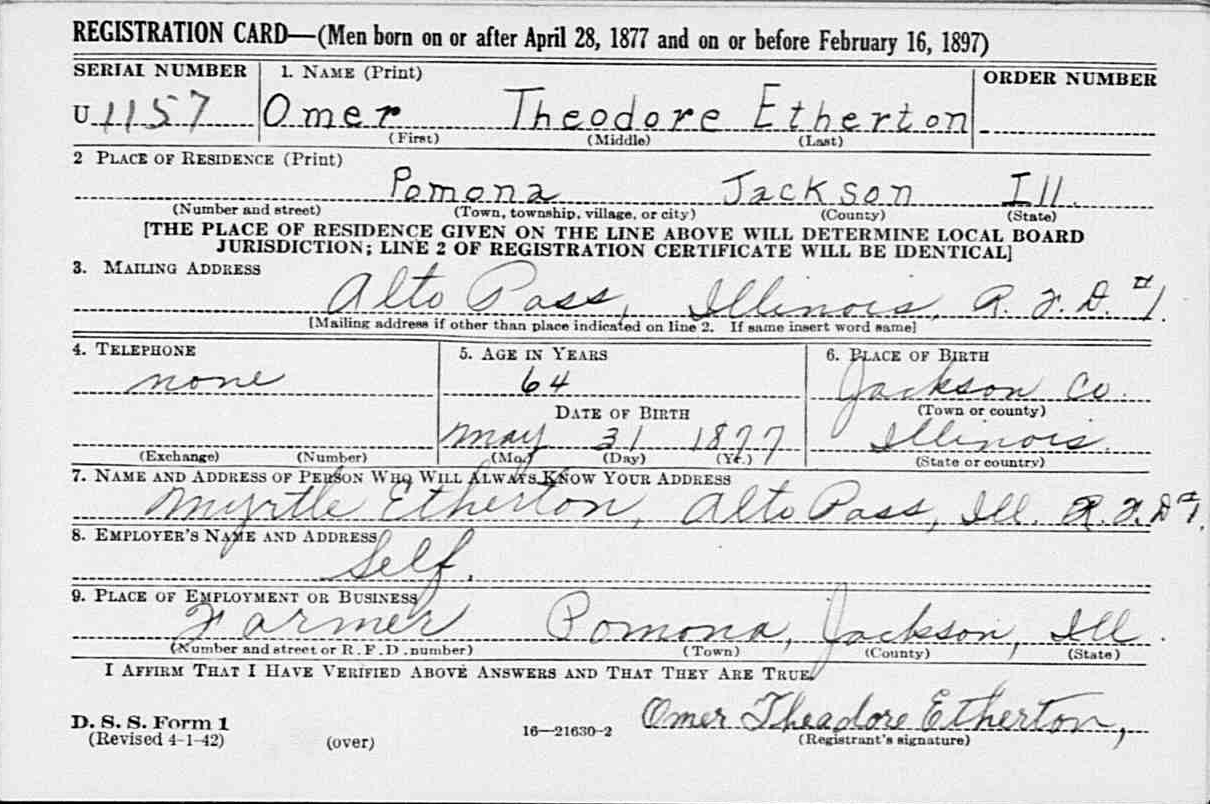 REGISTRATION CARD—(Men born on or after April 28, 1877 and on or before February 16, 1897)
SERIAL NUMBER 1. NAME (Print) ORDER NUMBER
U 1157 Omer Theodore Etherton
(First) (Middle) (Last)
2 PLACE OF RESIDENCE (Print)
Pomona Jackson Ill.
(Number and street) (Town, township, village, or city) (County) (State)
[THE PLACE OF RESIDENCE GIVEN ON THE LINE ABOVE WILL DETERMINE LOCAL BOARD
JURISDICTION; LINE 2 OF REGISTRATION CERTIFICATE WILL BE IDENTICAL]
3. MAILING ADDRESS
Alto Pass, Illinois, R. F. D. #1.
[Mailing address if other than place indicated on line 2. If same insert word same]
4. TELEPHONE 5. AGE IN YEARS 6. PLACE OF BIRTH
none 64 Jackson Co.
DATE OF BIRTH (Town or county)
May 31 1877 Illinois.
(Exchange) (Number) (Mo.) (Day) (Yr.) (State or country)
7. NAME AND ADDRESS OF PERSON WHO WILL ALWAYS KNOW YOUR ADDRESS
Myrtle Etherton, Alto Pass, Ill. R. F. D #1.
8. EMPLOYER'S NAME AND ADDRESS
Self.
9. PLACE OF EMPLOYMENT OR BUSINESS
Farmer Pomona, Jackson, Ill.
(Number and street or R. F. D. number) (Town) (County) (State)
I AFFIRM THAT I HAVE VERIFIED ABOVE ANSWERS AND THAT THEY ARE TRUE.
Omer Theadore Etherton,
D. S. S. Form 1
(Revised 4-1-42) (over) 16—21630-2 (Registrant's signature)